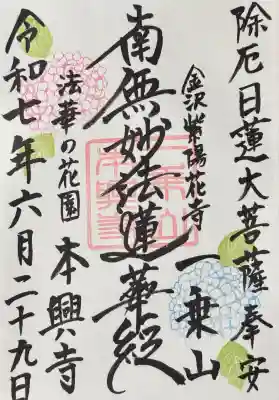 除厄日蓮大菩薩奉安
金沢紫陽花寺
一乗山
南無妙法蓮華経
法華の花園
本興寺
令和七年六月二十九日